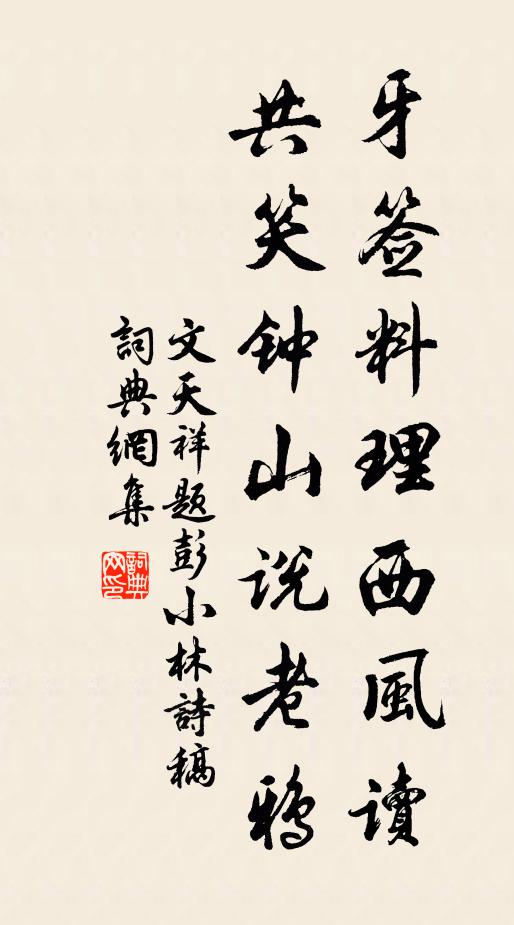 牙签料理西風讀
共笑钟山说老鴉
文天祥题彭小林詩稿
詞典網集
詞典
网印